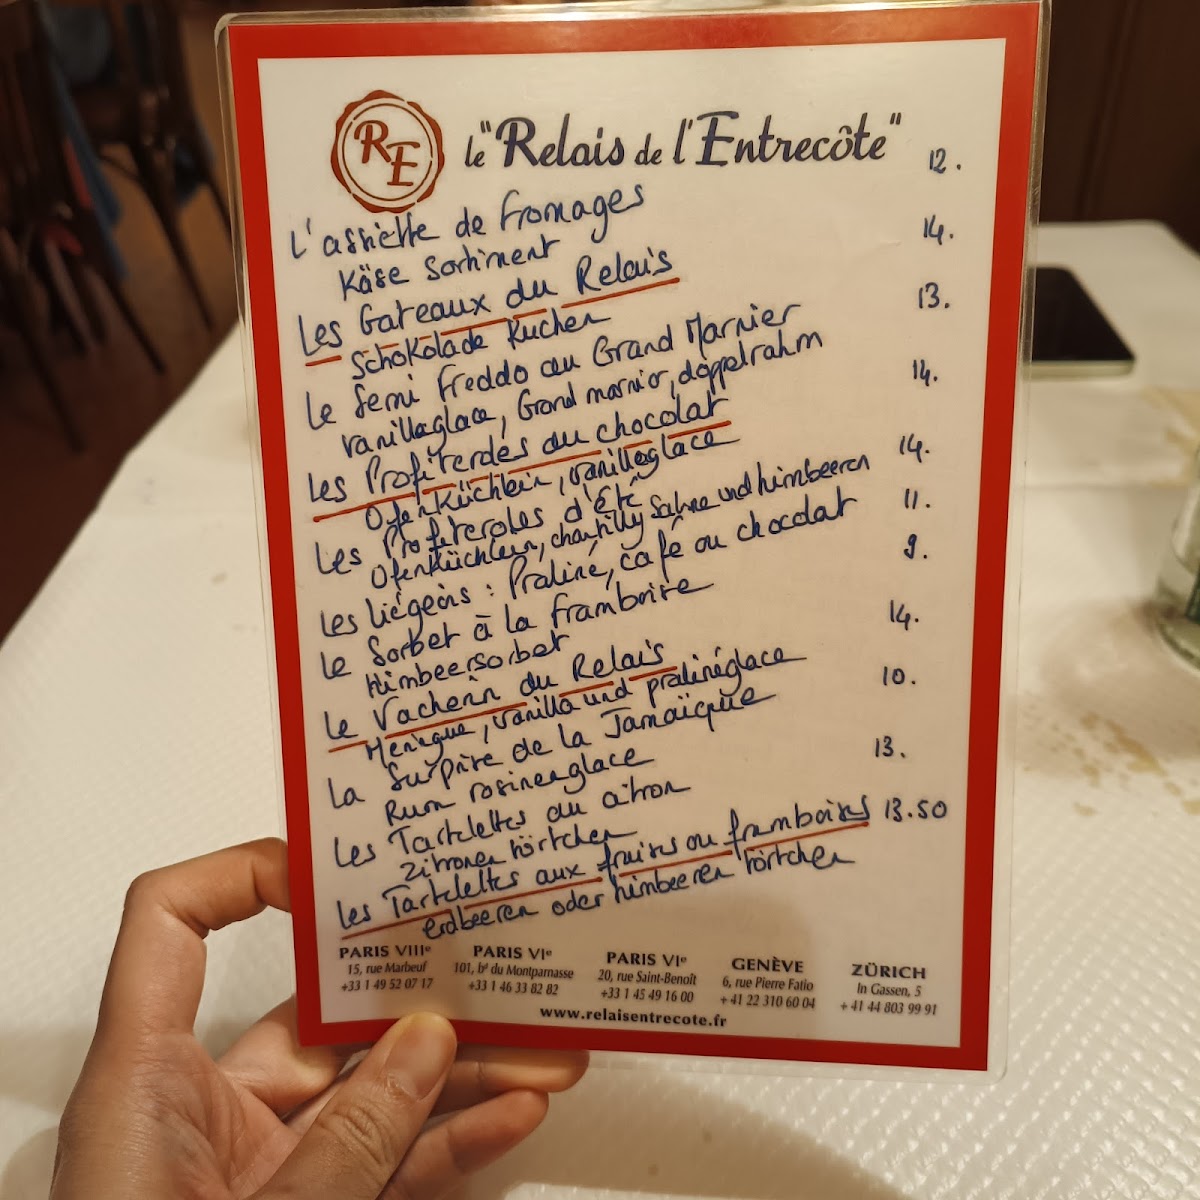 RE
le "Relais de l'Entrecôte"
L'assiette de fromages 12.
Käse Sortiment
Les Gateaux du Relais 14.
Schokolade Kuchen
Le Semi Freddo au Grand Marnier 13.
vanilleglace, Grand marnier, doppelrahm
Les Profiteroles au chocolat 14.
Ofenküchlein, vanilleglace
Les Profiteroles d'Été 14.
Ofenküchlein, chantilly Sahne und himbeeren
Les Liégeois : Praliné, café ou chocolat 11.
Le Sorbet à la framboise 9.
Himbeersorbet
Le Vacherin du Relais 14.
Meringue, vanilla und pralinéglace
La Surprise de la Jamaïque 10.
Rum rosinenglace
Les Tartelettes au citron 13.
Zitronen törtchen
Les Tartelettes aux fraises ou framboises 13.50
erdbeeren oder himbeeren törtchen
PARIS VIIIe PARIS VIe PARIS VIe GENÈVE ZÜRICH
15, rue Marbeuf 101, bd du Montparnasse 20, rue Saint-Benoît 6, rue Pierre Fatio In Gassen, 5
+33 1 49 52 07 17 +33 1 46 33 82 82 +33 1 45 49 16 00 +41 22 310 60 04 +41 44 803 99 91
www.relaisentrecote.fr